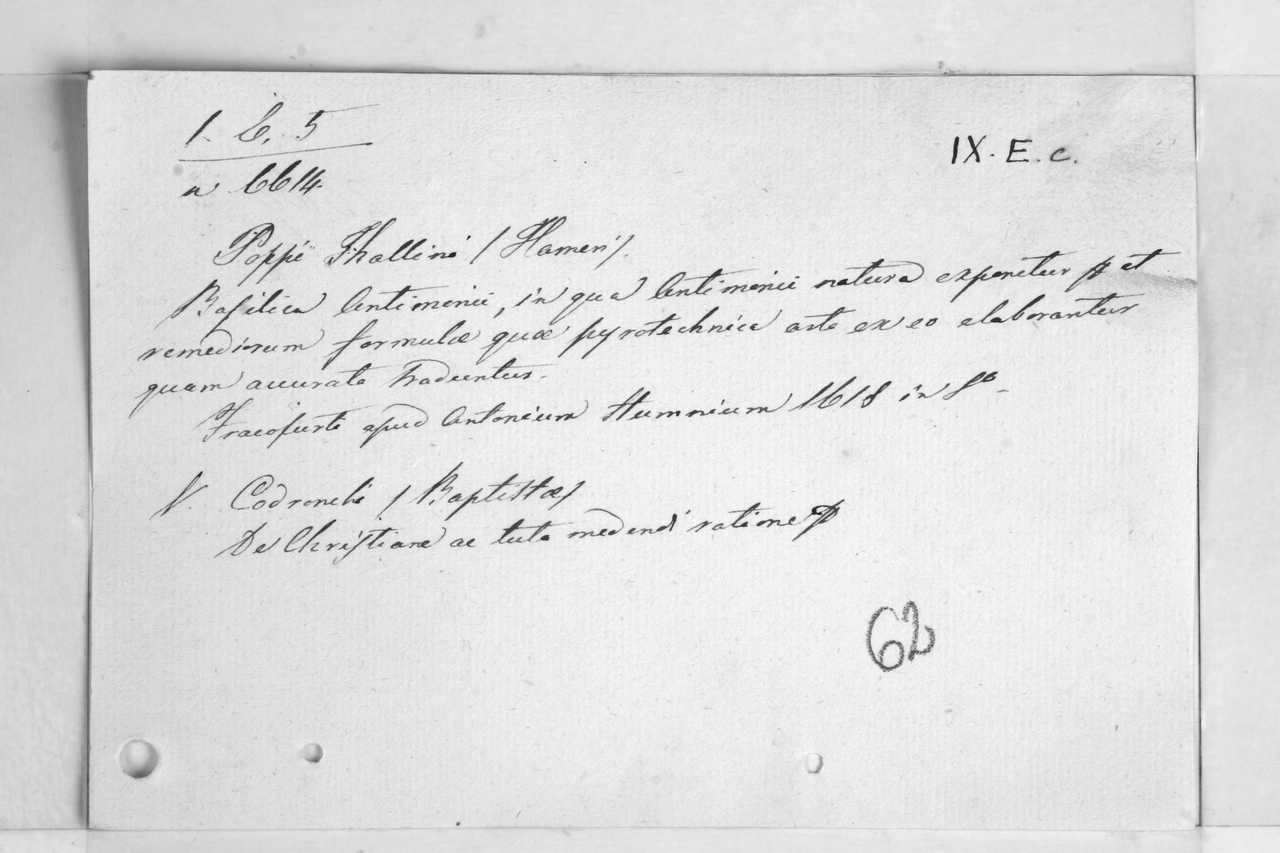 1. C. 5
n 6614.
IX. E. c.
Poppi Thallini / Hameri /.
Basilica Antimonii, in qua Antimonii natura exponitur et
remediorum formulæ quæ pyrotechnica arte ex eo elaborantur
quam accurate traduntur.
Francofurti apud Antonium Hummium 1618 in 8º
V. Codronchi / Baptistæ /
De Christiane ac tuto medendi ratione
62